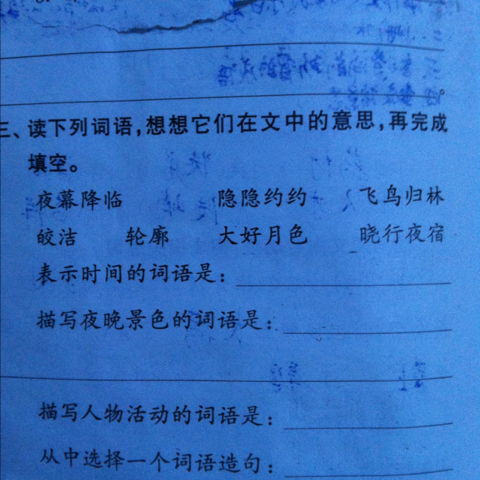 三、读下列词语,想想它们在文中的意思,再完成
填空。
夜幕降临 隐隐约约 飞鸟归林
皎洁 轮廓 大好月色 晓行夜宿
表示时间的词语是:
描写夜晚景色的词语是:
描写人物活动的词语是:
从中选择一个词语造句: